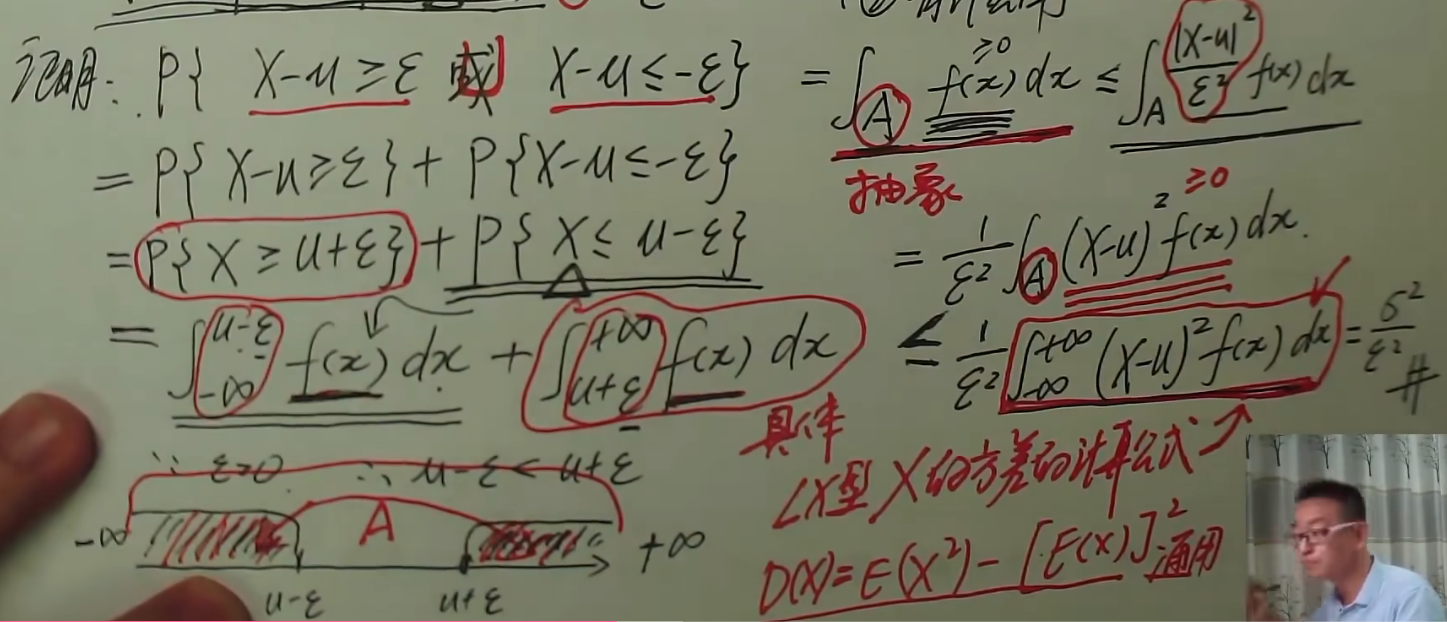 证明: P{ X-u≥ε 或 X-u≤-ε}
= P{ X-u≥ε} + P{X-u≤-ε}
= P{X≥u+ε} + P{X≤u-ε}
= ∫_{-∞}^{u-ε} f(x)dx + ∫_{u+ε}^{+∞} f(x)dx
具体
∵ ε>0 ∴ u-ε<u+ε
A
-∞ +∞
u-ε u+ε
= ∫_A f(x)dx ≤ ∫_A |X-u|²/ε² f(x)dx
≥0
抽象
≥0
= 1/ε² ∫_A (X-u)² f(x)dx.
≤ 1/ε² ∫_{-∞}^{+∞} (X-u)² f(x)dx = σ²/ε² #
X的方差的计算公式
D(X)=E(X²)-[E(X)]² 通用